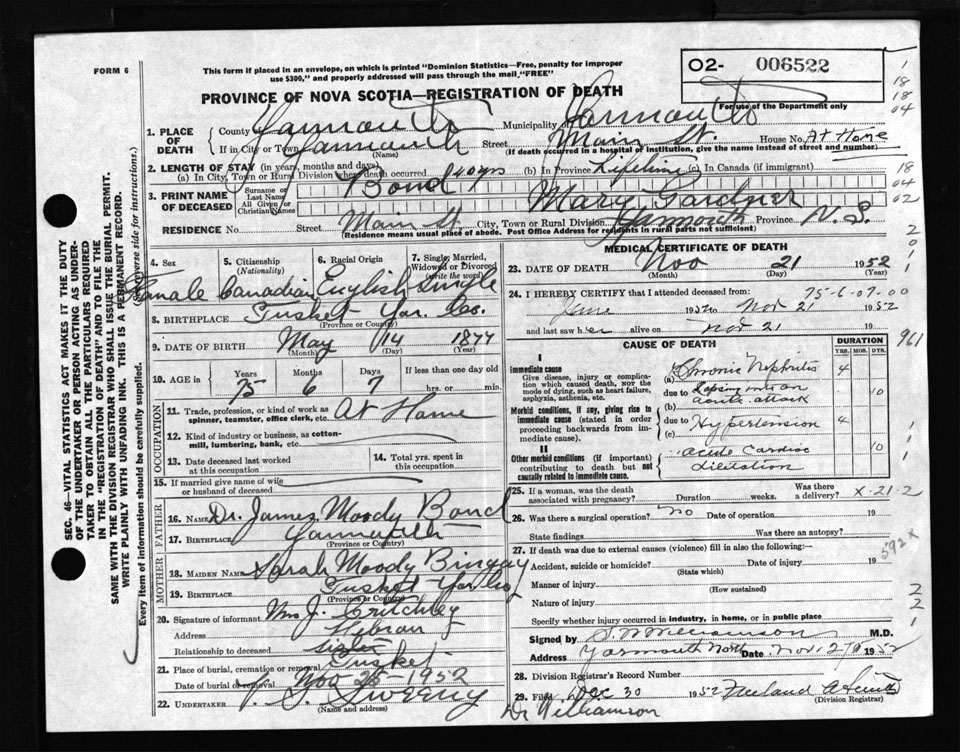 FORM 6
This form if placed in an envelope, on which is printed "Dominion Statistics—Free, penalty for improper
use $300," and properly addressed will pass through the mail "FREE"
02- 006522
For use of the Department only
PROVINCE OF NOVA SCOTIA—REGISTRATION OF DEATH
1. PLACE OF DEATH
County Yarmouth Municipality Yarmouth
If in City or Town Yarmouth (Name) Street Main St. House No. At Home
(If death occurred in a hospital or institution, give the name instead of street and number)
2. LENGTH OF STAY (in years, months and days)
(a) In City, Town or Rural Division where death occurred 40 yrs (b) In Province Lifetime (c) In Canada (if immigrant)
3. PRINT NAME OF DECEASED
Surname or Last Name Bond
All Given or Christian Names Mary Gardner
RESIDENCE No. Street Main St. City, Town or Rural Division Yarmouth Province N. S.
(Residence means usual place of abode. Post Office Address for residents in rural parts not sufficient)
4. Sex Female
5. Citizenship (Nationality) Canadian
6. Racial Origin English
7. Single, Married, Widowed or Divorced (write the word) Single
8. BIRTHPLACE Tusket Yar. Co.
(Province or Country)
9. DATE OF BIRTH May 14 1877
(Month) (Day) (Year)
10. AGE in Years 75 Months 6 Days 7 If less than one day old hrs. or min.
OCCUPATION
11. Trade, profession, or kind of work as spinner, teamster, office clerk, etc. At Home
12. Kind of industry or business, as cotton-mill, lumbering, bank, etc.
13. Date deceased last worked at this occupation
14. Total yrs. spent in this occupation
15. If married give name of wife or husband of deceased
FATHER
16. Name Dr. James Moody Bond
17. Birthplace Yarmouth
(Province or Country)
MOTHER
18. Maiden Name Sarah Moody Bingay
19. Birthplace Tusket Yar Co
(Province or Country)
20. Signature of informant Mrs J. Critchley
Address
Relationship to deceased sister
21. Place of burial, cremation or removal Tusket
Date of burial or removal Nov 25-1952
22. UNDERTAKER Sweeny
(Name and address)
MEDICAL CERTIFICATE OF DEATH
23. DATE OF DEATH Nov 21 1952
(Month) (Day) (Year)
24. I HEREBY CERTIFY that I attended deceased from: 75-6-07-00
June 1952 to Nov 21 1952
and last saw her alive on Nov 21 19
CAUSE OF DEATH
DURATION
YRS. MOS. DYS.
I
Immediate cause
Give disease, injury or complication which caused death, not the mode of dying, such as heart failure, asphyxia, asthenia, etc.
(a) Chronic Nephritis 4
due to
(b) acute attack 10
Morbid conditions, if any, giving rise to immediate cause (stated in order proceeding backwards from immediate cause).
due to
(c) Hypertension 4
II
Other morbid conditions (if important) contributing to death but not causally related to immediate cause.
acute Cardiac Dilitation 10
25. If a woman, was the death associated with pregnancy? Duration weeks. Was there a delivery? X-21-2
26. Was there a surgical operation? no Date of operation
State findings Was there an autopsy?
27. If death was due to external causes (violence) fill in also the following:—
Accident, suicide or homicide? Date of injury 19
(State which)
Manner of injury
(How sustained)
Nature of injury
Specify whether injury occurred in industry, in home, or in public place
Signed by S. W. Williamson M.D.
Address Yarmouth North Date Nov. 1952
28. Division Registrar's Record Number
29. Filed Dec 30 1952
(Division Registrar)
Dr Williamson
592x
961
SEC. 46—VITAL STATISTICS ACT MAKES IT THE DUTY
OF THE UNDERTAKER OR PERSON ACTING AS UNDER-
TAKER TO OBTAIN ALL THE PARTICULARS REQUIRED
IN THE "REGISTRATION OF DEATH" AND TO FILE THE
SAME WITH THE DIVISION REGISTRAR WHO SHALL ISSUE THE BURIAL PERMIT.
WRITE PLAINLY WITH UNFADING INK. THIS IS A PERMANENT RECORD.
Every item of information should be carefully supplied. (See reverse side for instructions.)
1
18
18
04
18
04
02
2
0
1